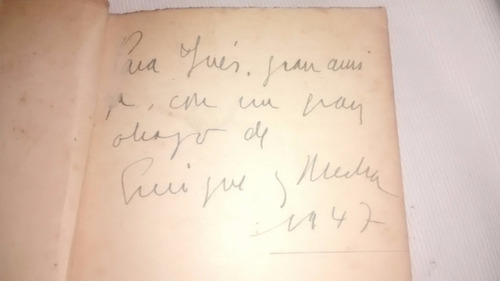 Para Inés, gran ami
ga, con un gran
abrazo de
Enrique y
1947